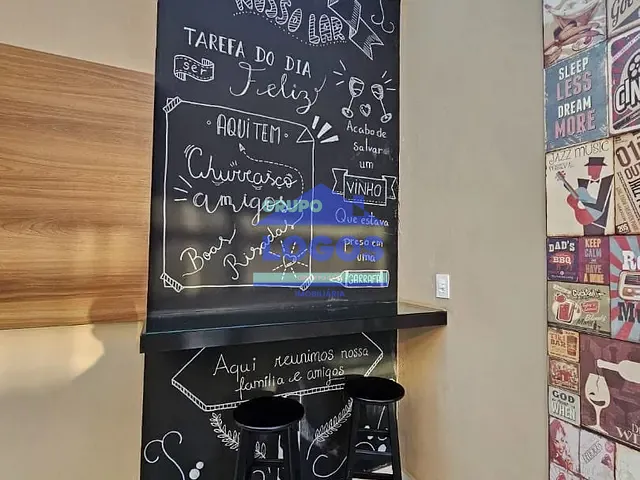 NOSSO LAR
TAREFA DO DIA
ser
Feliz
AQUI TEM
Churrasco
amigos
Boas
Risadas
Acabo de
salvar
um
VINHO
Que estava
preso em
uma
GARRAFA
GRUPO
LOGOS
IMOBILIÁRIA
Aqui reunimos nossa
família e amigos
SLEEP
LESS
DREAM
MORE
JAZZ MUSIC
DAD'S
BBQ
KEEP
CALM
AND
HAVE
A
GOD
WHEN